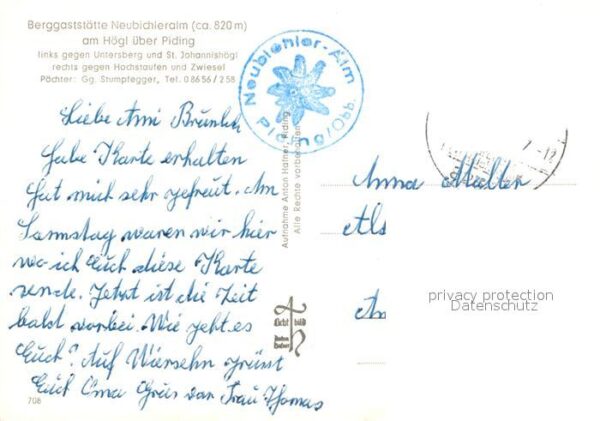 Berggaststätte Neubichleralm (ca. 820 m)
am Högl über Piding
links gegen Untersberg und St. Johannishögl
rechts gegen Hochstaufen und Zwiesel
Pächter: Gg. Stumpfegger, Tel. 0 86 56 / 2 58
Neubichler-Alm
Piding/Obb.
Liebe Ami
Habe Karte erhalten
hat mich sehr gefreut. Am
Samstag waren wir hier
wo ich Euch diese Karte
sende. Jetzt ist die Zeit
bald vorbei. Wie geht es
Euch? Auf Wiersehn grüsst
Euch Oma Grüs von Frau Thomas
708
Aufnahme Anton Hafner, Piding
Alle Rechte vorbehalten
Anna
Als
An
privacy protection
Datenschutz